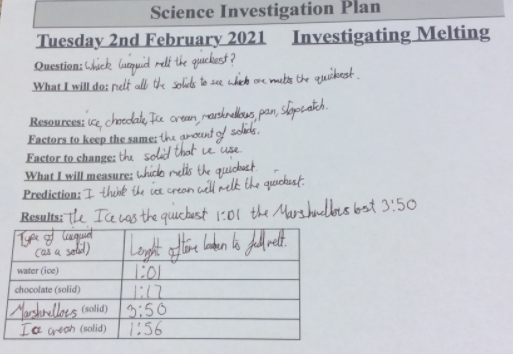 Science Investigation Plan
Tuesday 2nd February 2021 Investigating Melting
Question: Which liquid melt the quickest?
What I will do: melt all the solids to see which one melts the quickest.
Resources: ice, chocolate, Ice cream, marshmellows, pan, stopwatch.
Factors to keep the same: the amount of solids.
Factor to change: the solid that we use.
What I will measure: which melts the quickest.
Prediction: I think the ice cream will melt the quickest.
Results: The Ice was the quickest 1:01 the Marshmellows last 3:50
Type of liquid
(as a solid)
Lenght of time taken to full melt.
water (ice) 1:01
chocolate (solid) 1:17
Marshmellows (solid) 3:50
Ice cream (solid) 1:56